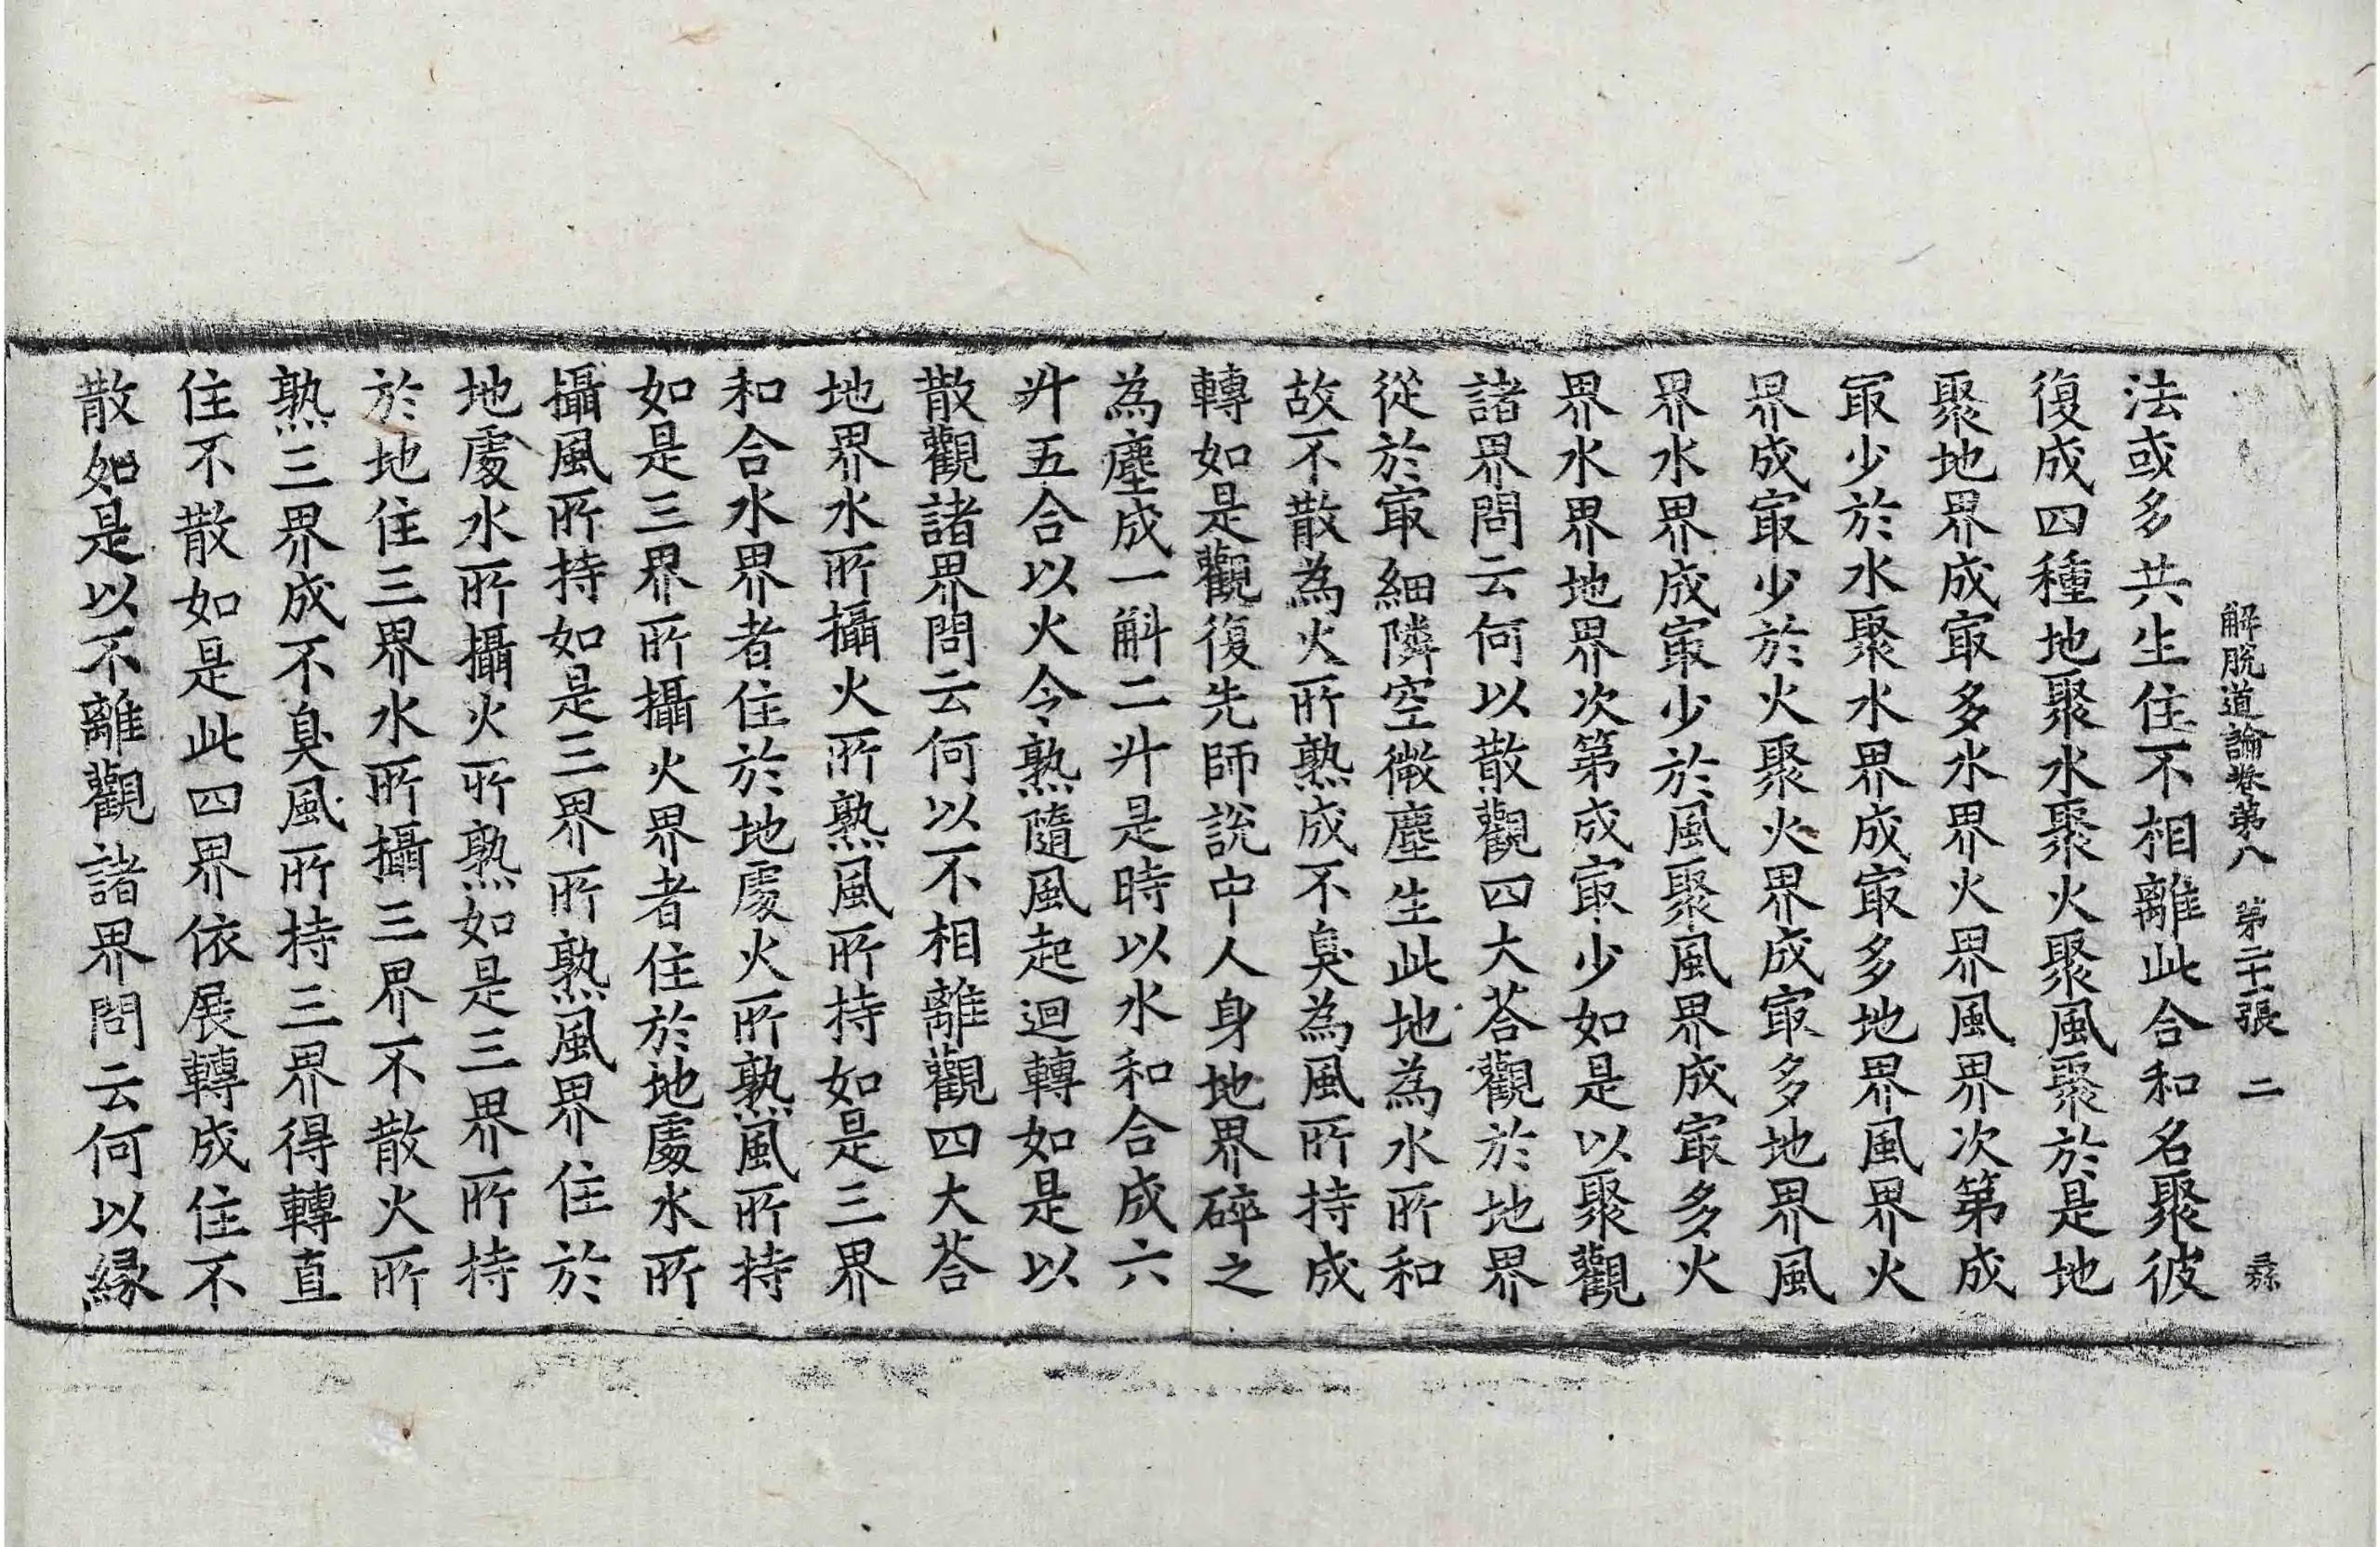 解脫道論卷第八 第二十一張 二 㷡
法或多共生住不相離此合和名聚彼
復成四種地聚水聚火聚風聚於是地
聚地界成㝡多水界火界風界次第成
㝡少於水聚水界成㝡多地界風界火
界成㝡少於火聚火界成㝡多地界風
界水界成㝡少於風聚風界成㝡多火
界水界地界次第成㝡少如是以聚觀
諸界問云何以散觀四大荅觀於地界
從於㝡細隣空微塵生此地為水所和
故不散為火所熟成不臭為風所持成
轉如是觀復先師說中人身地界碎之
為塵成一斛二升是時以水和合成六
升五合以火令熟隨風起迴轉如是以
散觀諸界問云何以不相離觀四大荅
地界水所攝火所熟風所持如是三界
和合水界者住於地處火所熟風所持
如是三界所攝火界者住於地處水所
攝風所持如是三界所熟風界住於
地處水所攝火所熟如是三界所持
於地住三界水所攝三界不散火所
熟三界成不臭風所持三界得轉直
住不散如是此四界依展轉成住不
散如是以不離觀諸界問云何以緣